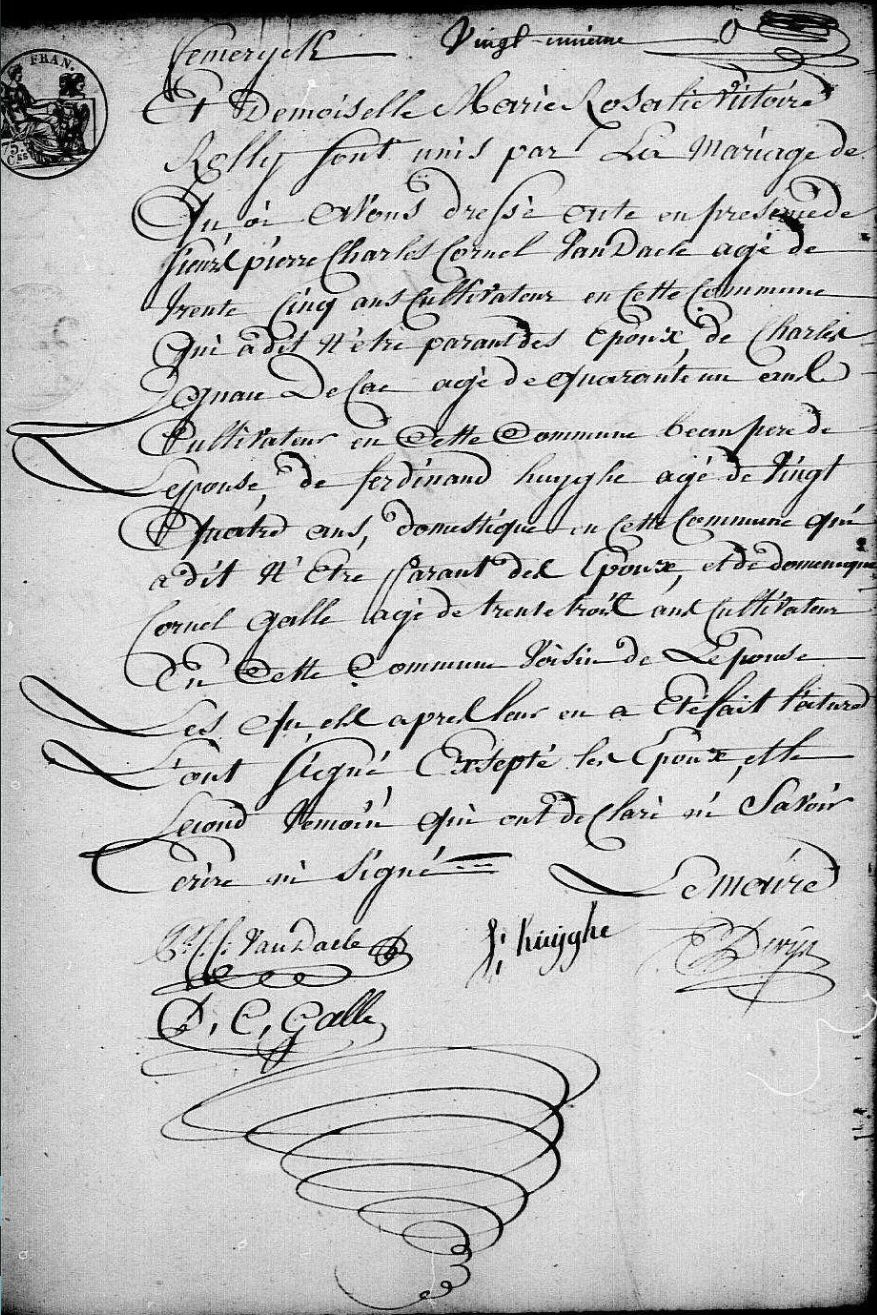 FRAN.
75
Cᴇs
Semeryck Vingt unieme
Et Demoiselle Marie Rosalie Vitoire
Rolly sont unis par La Mariage de
Qu, oi avons dressé acte en presence de
Sieurs pierre Charles Cornel Van Dacle agé de
trente Cinq ans Cultivateur en Cette Commune
Qui a dit N'etre parant des epoux, de Charles
Ignace De Cae agé de quarante un ans
Cultivateur en Cette Commune beau pere de
Lepouse, de ferdinand huyghe agé de Vingt
Quatre ans, domestique en Cette Commune qui
a dit N'Etre Parant des Epoux, et de domenique
Cornel Galle agé de trente trois ans Cultivateur
En Cette Commune Voisin de Lepouse
Les Qu, els apres leur en a Eté fait Lecture
L'ont Signé Exsepté les Epoux, et le
Second temoin qui ont de Claré ni Savoir
Ecrire ni Signé
Le maire
P. C. C. Van Dacle
f; huyghe
D, C, Galle